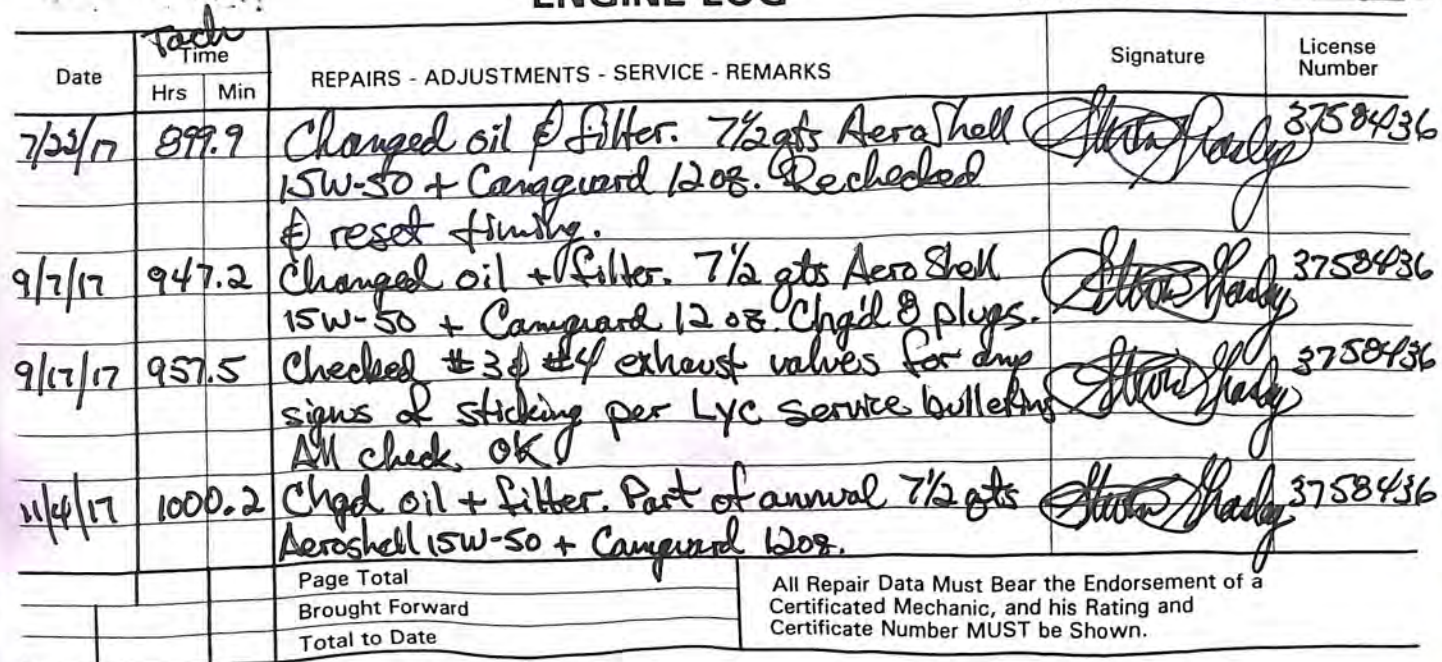 ENGINE LOG
Date
Tach
Time
Hrs Min
REPAIRS - ADJUSTMENTS - SERVICE - REMARKS
Signature
License
Number
7/23/17 899.9 Changed oil & filter. 7½ qts AeroShell 3758436
15W-50 + Camguard 12 oz. Rechecked
& reset timing.
9/7/17 947.2 Changed oil + filter. 7½ qts AeroShell 3758436
15W-50 + Camguard 12 oz. Chg'd 8 plugs.
9/17/17 957.5 Checked #3 & #4 exhaust valves for any 3758436
signs of sticking per Lyc service bulletins
All check OK.
11/4/17 1000.2 Chgd oil + filter. Part of annual 7½ qts 3758436
Aeroshell 15W-50 + Camguard 12oz.
Page Total
Brought Forward
Total to Date
All Repair Data Must Bear the Endorsement of a
Certificated Mechanic, and his Rating and
Certificate Number MUST be Shown.